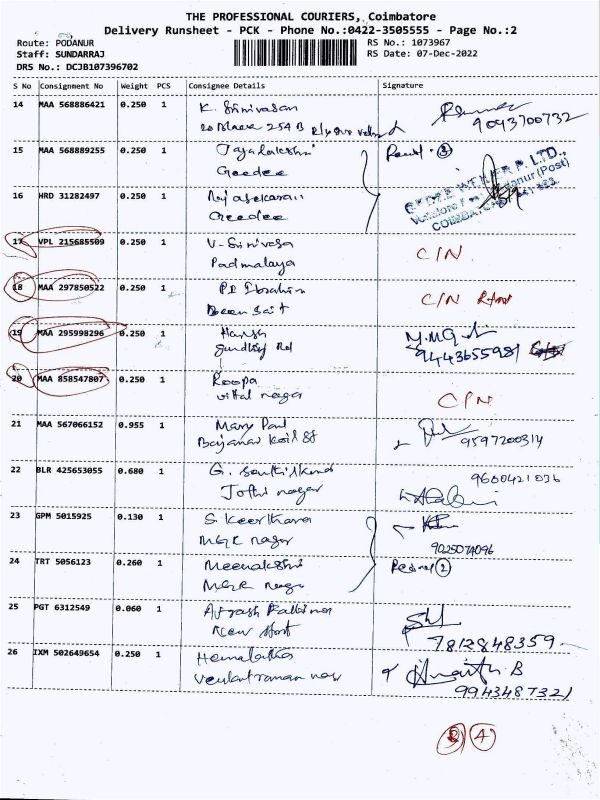 THE PROFESSIONAL COURIERS, Coimbatore
Delivery Runsheet - PCK - Phone No.:0422-3505555 - Page No.:2
Route: PODANUR RS No.: 1073967
Staff: SUNDARRAJ RS Date: 07-Dec-2022
DRS No.: DCJB107396702
S No Consignment No Weight PCS Consignee Details Signature
14 MAA 568886421 0.250 1 K. Srinivasan
254 B
9043700732
15 MAA 568889255 0.250 1 Jayalakshmi
Geedee
16 HRD 31282497 0.250 1 Rajasekaran
Geedee
COIMBATORE
17 VPL 215685509 0.250 1 V. Srinivasa C/N
Padmalaya
18 MAA 297850522 0.250 1 PE Ibrahim C/N
19 MAA 295998296 0.250 1 Harish
Gandhiji Rd 9443655981
20 MAA 858547807 0.250 1 Roopa
vittal nagar C/N
21 MAA 567066152 0.955 1 Mary Paul
9597200314
22 BLR 425653055 0.680 1 G. Senthilkumar 9600421036
Jothi nagar
23 GPM 5015925 0.130 1 S. Keerthana
MGR nagar 9025074096
24 TRT 5056123 0.260 1 Meenakshi 2
MGR nagar
25 PGT 6312549 0.060 1
7812848359
26 IXM 502649654 0.250 1 Hemalatha B
9943487321
4